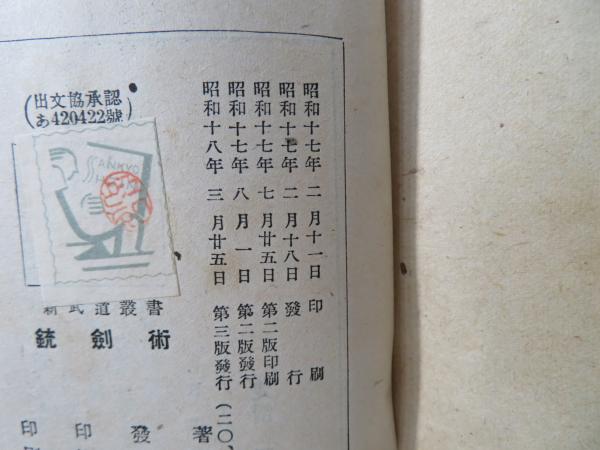 昭和十七年二月十一日印刷
昭和十七年二月十八日發行
昭和十七年七月廿五日第二版印刷
昭和十七年八月一日第二版發行
昭和十八年三月廿五日第三版發行(二〇、
(出文協承認
あ420422號)
新武道叢書
銃劍術
著
發
印
印